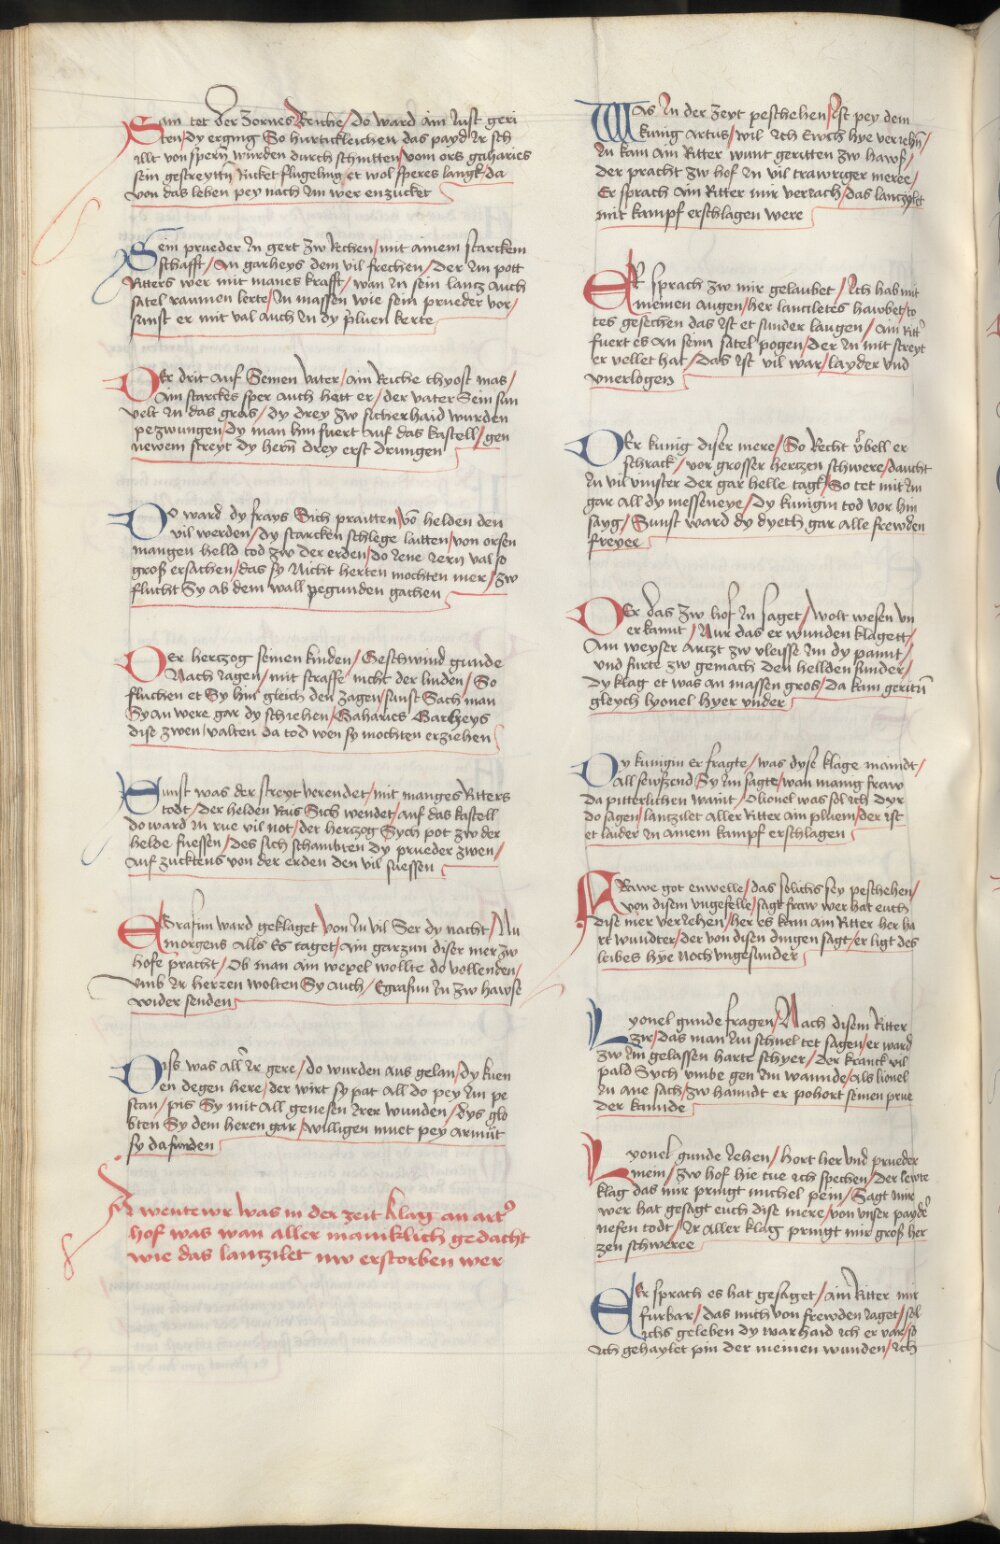 Sam tet der Zornes Reiche / Do ward ain lust geri
ten / dy erging So hurtickleichen das payd ir sch
illt von spern wurden durch schnitten / vom ors gaharies
sein gestreyttn rucket flugeling / et wol speres langk / da
von das leben pey nach im wer enzucket
Sein prueder in gert zw rechen / mit ainem starckem
schafft / An garheys dem vil frechen / Der im pott
Ritters wer mit manes krafft / wan in sein lantz auch
satel raumen lerte / In massen wie sein prueder vor /
sunst er mit val auch in dy pluen kerte
Der drit auf Seinen vater / ain Reiche thyost mas /
Ain starckes sper auch hett er / der vater Sein sun
velt in das gras / dy drey zw sicherhaid wurden
pezwungen / dy man hin fuert auf das kastell / gen
newem streyt dy hern drey erst drungen
Do ward dy frays Sich praitten / vo helden den
vil werden / dy starcken schlege lutten / von orsen
mangen helld tod zw der erden / do iene iern val so
groß ersachen / das sy nicht herten mochten mer / zw
flucht Sy ab dem wall pegunden gachen
Der hertzog seinen kinden / Geschwind gunde
Nach iagen / mit straffe nicht der linden / So
fluchen et Sy hin gleich den zagen / sunst Sach man
Sy an were gar dy schiehen / Gaharies Garheys
dise zwen / valten da tod wen sy mochten erziehen
Sunst was der streyt verendet / mit manges Ritters
todt / Der helden Rais Sich wendet / auf das kastell
do ward in rue vil not / der hertzog Sych pot zw der
helde fuessen / Des sich schambten dy prueder zwen /
auf zucktens von der erden den vil suessen
Egrasim ward geklaget von in vil Ser dy nacht / Nu
morgens alls Es taget / Ain garzun diser mer zw
hofe pracht / Ob man ain wexel wollte do vollenden /
umb ir herzen wolten Sy auch / Egrasim in zw hawse
wider senden
Diss was aller ir gere / do wurden aus gelan / dy kuen
en degen here / der wirt sy pat all do pey im pe
stan / pis Sy mit all genesen irer wunden / dys glo
bten Sy dem heren gar / willigen muet pey armut
sy da funden
Awentewr was in der zeit klag an art
hof was wan aller mainklich gedacht
wie das lantzilet nw erstorben wer
Was in der zeyt peschehen / Ist pey dem
kunig Artus / wil ich Ewch hye veriehn /
In kam ain Ritter wunt geritten zw haws /
der pracht zw hof in vil trawriger meree /
Er sprach ain Ritter mir veriach / das lanczylet
mit kampf erschlagen were
Er sprach zw mir gelaubet / Ich hab mit
meinen augen / her lanciletes hawbet / to
tes gesechen das ist et sunder laugen / ain ritt
fuert es an seim satel pogen / der in mit streyt
er vellet hat / Das ist vil war / layder und
vnerlogen
Der kunig diser mere / So Recht vbell er
schrack / vor grosser hertzen schwere / daucht
in vil vinster der gar helle tagk / So tet mit im
gar all dy messeneye / Dy kunigin tod vor hin
sayg / Sunst ward dy dyeth gar alle frewden
freyee
Der das zw hof in saget / wolt wesen vn
erkannt / Nur das er wunden klagett /
Ain weyser artzt zw vleisse im dy pannt /
und furte zw gemach den hellden sunder /
Dy klag et was an massen gros / Da kam geritn
gleych lyonel hyer vnder
Dy kunigin er fragte / was dyse klage maindt /
All sewfzend Sy im sagte / wan manig fraw
da pitterlichen waint / O lionel was sol ich Dyr
do sagen / lantzilet aller Ritter ain pluem / der ist
et laider in ainem kampf erschlagen
Frawe got enwelle / das solichs sey peschehen /
von disem ungefelle / sagt fraw wer hat euch
dise mer veriehen / her es kam ain Ritter her ha
rt wundter / der von disen dingen sagt / er ligt des
leibes hye noch ungesunder
Lyonel gunde fragen / Nach disem ritter
zir / das man im schnel tet sagen / er ward
zw im gelassen harte schyer / Der kranck vil
pald Sych umbe gen im wannde / Als lionel
in ane sach / zw handt er pohort seinen prue
der kannde
Lyonel gunde iehen / hort her und prueder
mein / zw hof hie tue ich spechen / Der lewte
klag das mir pringt michel pein / Sagt mir
wer hat gesagt euch dise mere / von unser payder
nefen todt / Ir aller klag pringt mir groß her
zen schweree
Er sprach es hat gesaget / ain Ritter mir
furbar / das mich von frewden iaget / sol
ichs geleben dy warhaid ich er var / so
ich gehaylet pin der meinen wunden / ich